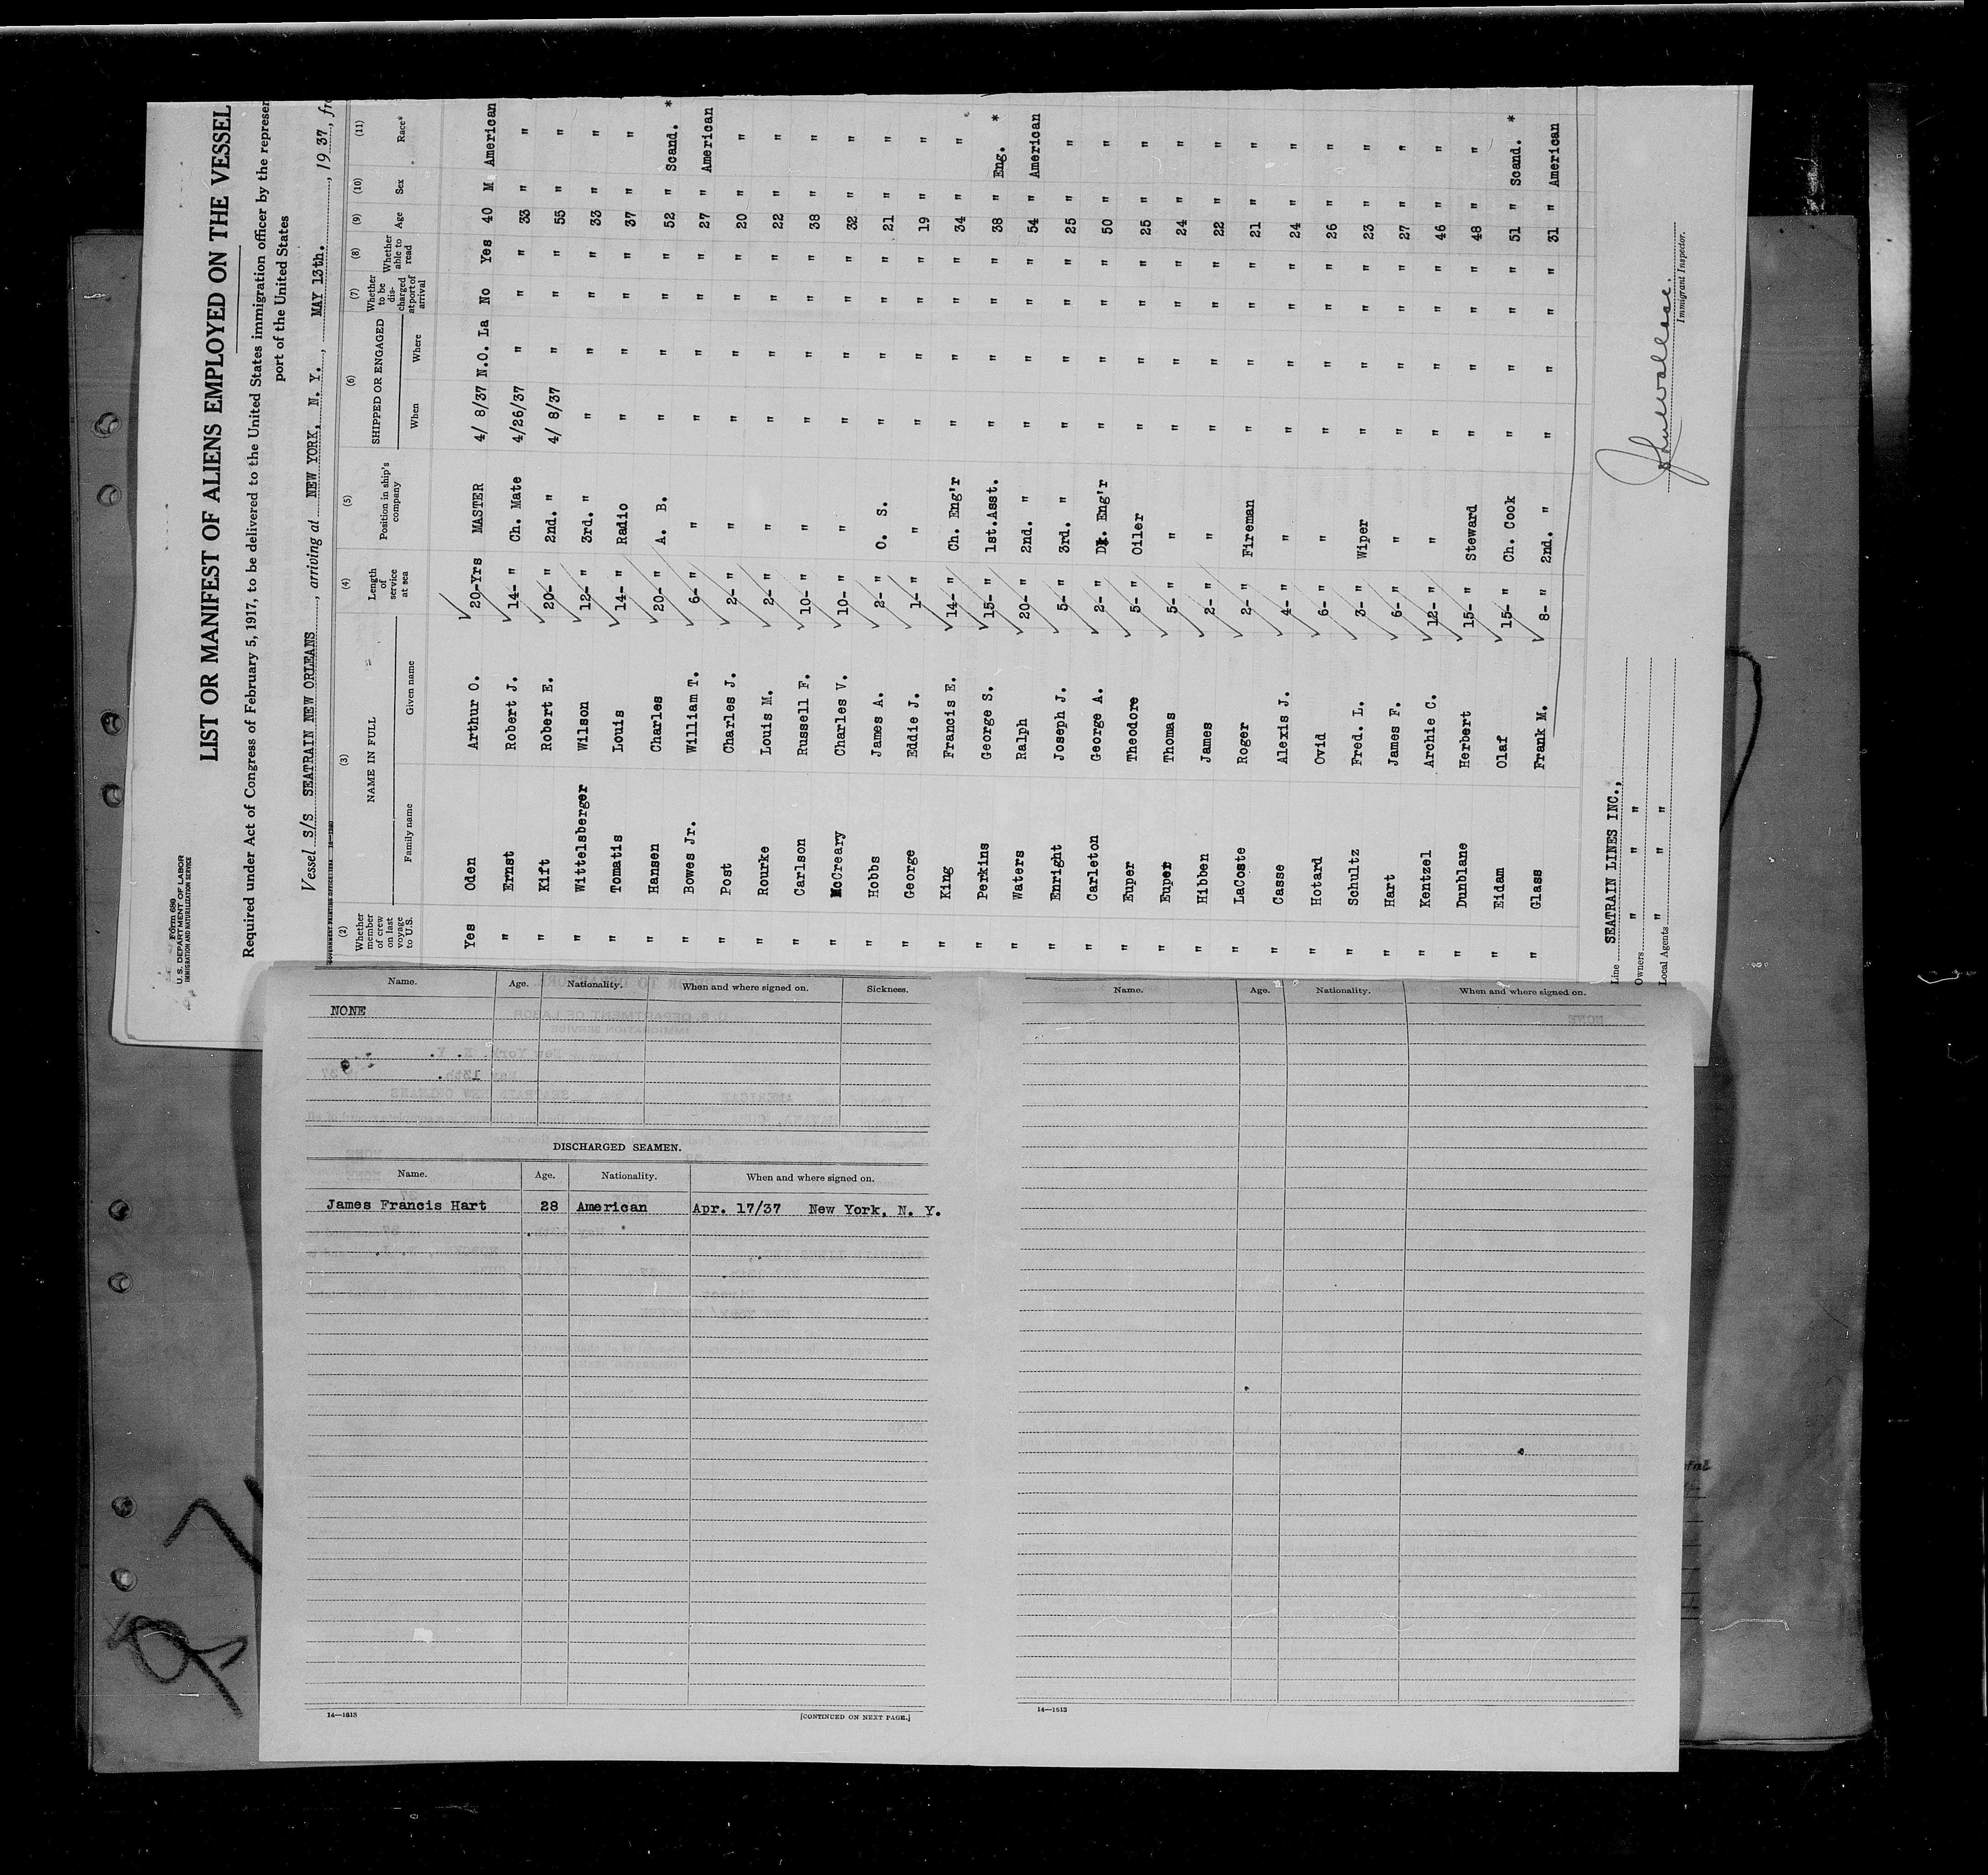 Form 680
U. S. DEPARTMENT OF LABOR
IMMIGRATION AND NATURALIZATION SERVICE
LIST OR MANIFEST OF ALIENS EMPLOYED ON THE VESSEL
Required under Act of Congress of February 5, 1917, to be delivered to the United States immigration officer by the represen
port of the United States
Vessel S/S SEATRAIN NEW ORLEANS, arriving at NEW YORK, N. Y., MAY 13th., 1937, fro
(2) (3) (4) (5) (6) (7) (8) (9) (10) (11)
Whether member of crew on last voyage to U.S. NAME IN FULL Family name Given name Length of service at sea Position in ship's company SHIPPED OR ENGAGED When Where Whether to be discharged at port of arrival Whether able to read Age Sex Race*
Yes Oden Arthur O. 20-Yrs MASTER 4/ 8/37 N.O. La No Yes 40 M American
" Ernst Robert J. 14- " Ch. Mate 4/26/37 " " " 33 " "
" Kift Robert E. 20- " 2nd. " 4/ 8/37 " " " 55 " "
" Wittelsberger Wilson 12- " 3rd. " " " " " 33 " "
" Tomatis Louis 14- " Radio " " " " 37 " "
" Hansen Charles 20- " A. B. " " " " 52 " Scand. *
" Bowes Jr. William T. 6- " " " " " " 27 " American
" Post Charles J. 2- " " " " " " 20 " "
" Rourke Louis M. 2- " " " " " " 22 " "
" Carlson Russell F. 10- " " " " " " 38 " "
" McCreary Charles V. 10- " " " " " " 32 " "
" Hobbs James A. 2- " O. S. " " " " 21 " "
" George Eddie J. 1- " " " " " " 19 " "
" King Francis E. 14- " Ch. Eng'r " " " " 34 " "
" Perkins George S. 15- " 1st.Asst. " " " " 38 " Eng. *
" Waters Ralph 20- " 2nd. " " " " " 54 " American
" Enright Joseph J. 5- " 3rd. " " " " " 25 " "
" Carleton George A. 2- " Dk. Eng'r " " " " 50 " "
" Euper Theodore 5- " Oiler " " " " 25 " "
" Euper Thomas 5- " " " " " " 24 " "
" Hibben James 2- " " " " " " 22 " "
" LaCoste Roger 2- " Fireman " " " " 21 " "
" Casse Alexis J. 4- " " " " " " 24 " "
" Hotard Ovid 6- " " " " " " 26 " "
" Schultz Fred. L. 3- " Wiper " " " " 23 " "
" Hart James F. 6- " " " " " " 27 " "
" Kentzel Archie C. 12- " " " " " " 46 " "
" Dunblane Herbert 15- " Steward " " " " 48 " "
" Eidam Olaf 15- " Ch. Cook " " " " 51 " Scand. *
" Glass Frank M. 8- " 2nd. " " " " " 31 " American
Line SEATRAIN LINES INC.,
Owners " " "
Local Agents " " "
Immigrant Inspector.
Name. Age. Nationality. When and where signed on. Sickness.
NONE
DISCHARGED SEAMEN.
Name. Age. Nationality. When and where signed on.
James Francis Hart 28 American Apr. 17/37 New York, N. Y.
14—1613
[CONTINUED ON NEXT PAGE.]
Name. Age. Nationality. When and where signed on.
14—1613